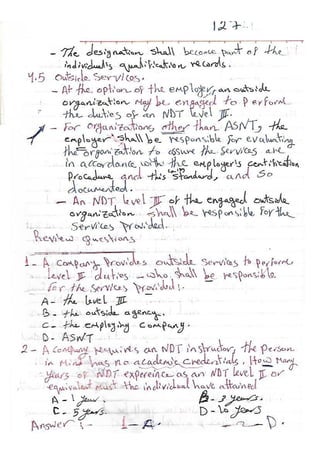 127
- The designation shall become part of the
individuals qualification records.
4.5 Outside Services.
- At the option of the employer, an outside
organization may be engaged to perform
the duties of an NDT level III.
- For organizations other than ASNT, the
employer shall be responsible for evaluating
the organization to assure the services are
in accordance with the employer's certification
Procedure and this standard, and so
documented.
- An NDT level III of the engaged outside
organization shall be responsible for the
services provided.
Review questions
1 - A company provides outside services to perform
level III duties - who shall be responsible
for the services provided:
A - the level III
B - the outside agency.
C - the employing company.
D - ASNT
2 - A company requires an NDT instructor, the person
in mind has no academic credentials. How many
years of NDT expereince as an NDT level II or
equivalent must the individual have attained
A - 1 year. B - 3 years.
C - 5 years. D - 10 years
Answer :- 1- 2- D.